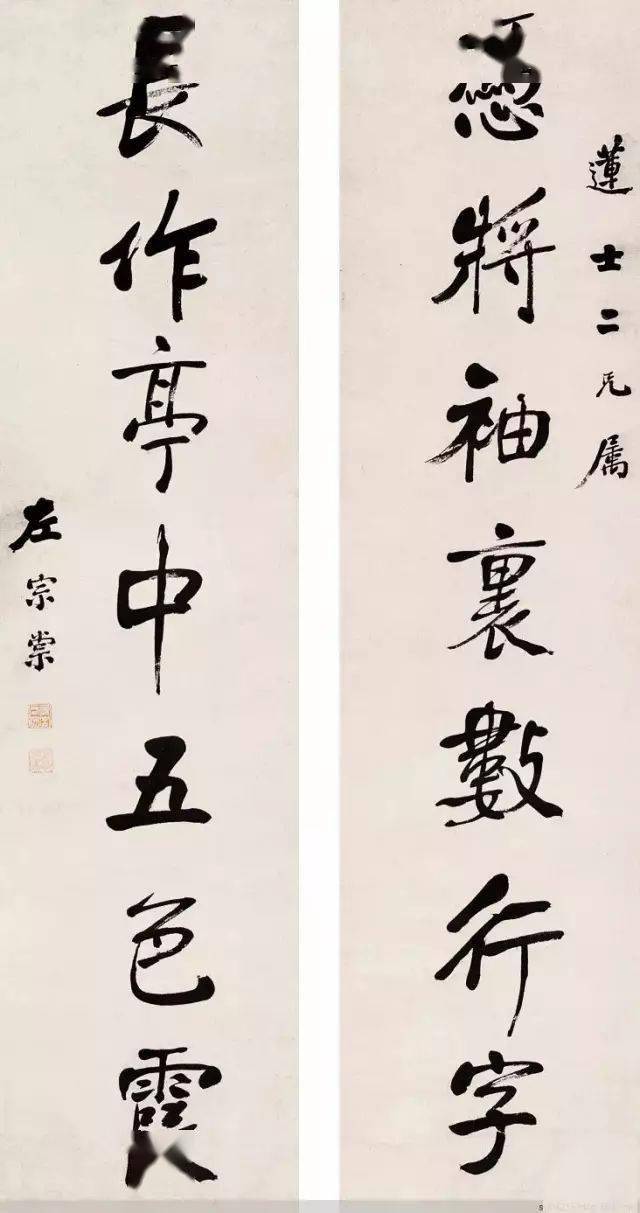 蓮士二兄属
憑將袖裏數行字
長作亭中五色霞
左宗棠